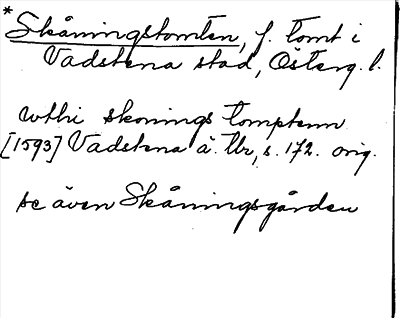 * Skåningstomten, f. tomt i
Vadstena stad, Österg. l.
wthi skonings tomptenn
[1593] Vadstena ä. Tb, s. 172. orig.
se även Skåningsgården